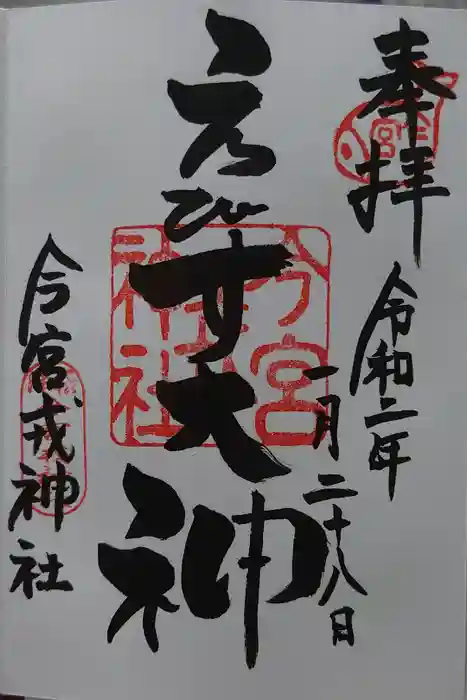 奉拝
令和二年
一月二十八日
えびす大神
今宮
神社
今宮戎神社